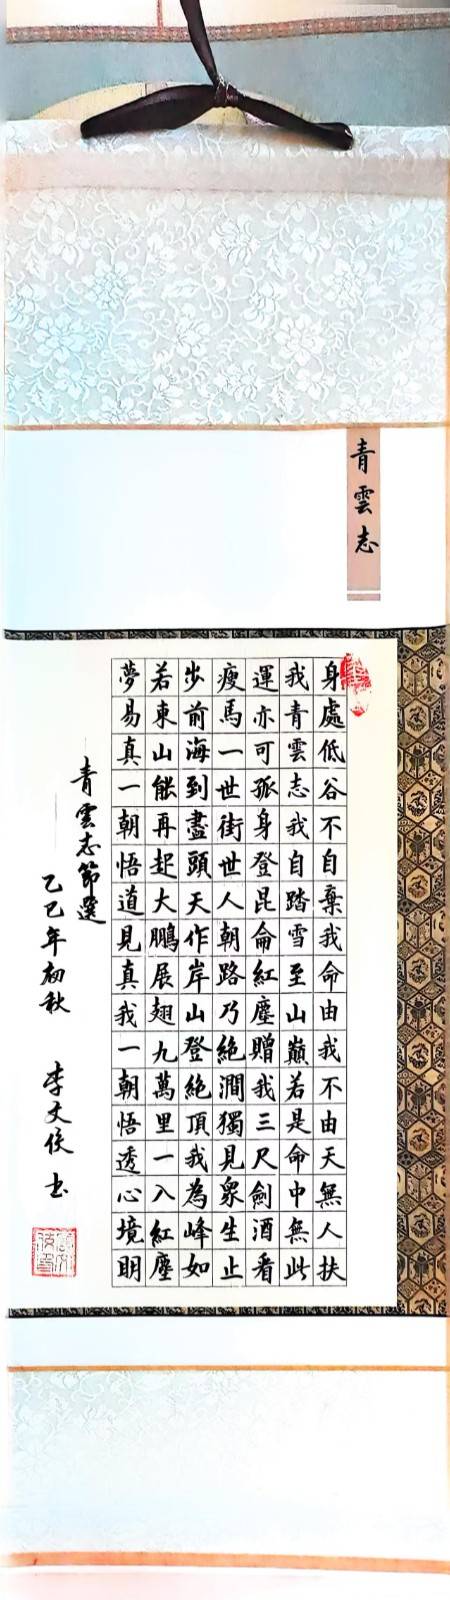 青雲志
身處低谷不自棄我命由我不由天無人扶
我青雲志我自踏雪至山巔若是命中無此
運亦可孤身登昆侖紅塵贈我三尺劍酒看
瘦馬一世街世人朝路乃絕澗獨見衆生止
步前海到盡頭天作岸山登絕頂我為峰如
若東山能再起大鵬展翅九萬里一入紅塵
夢易真一朝悟道見真我一朝悟透心境明
青雲志節選
乙巳年初秋 李文侯 书